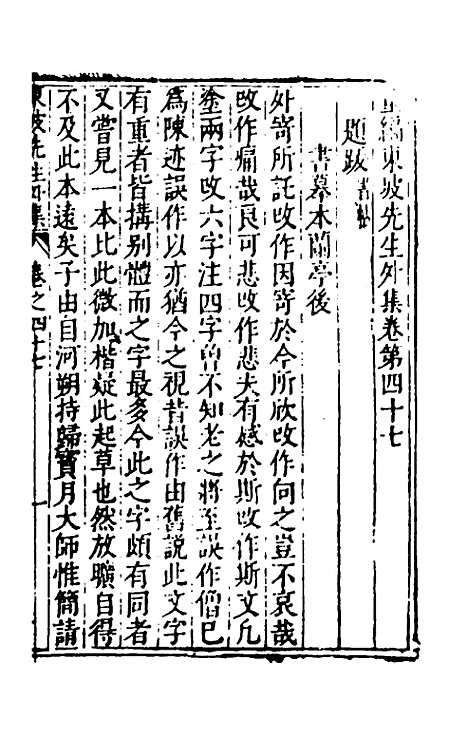 重編東坡先生外集卷第四十七
題跋書帖
書摹本蘭亭後
外寄所託改作因寄於今所欣改作向之豈不哀哉
改作痛哉良可悲改作悲夫有感於斯改作斯文凡
塗兩字改六字注四字曽不知老之將至誤作僧已
爲陳迹誤作以亦猶今之視昔誤作由舊說此文字
有重者皆搆别體而之字最多今此之字頗有同者
又嘗見一本比此微加楷疑此起草也然放曠自得
不及此本遠矣子由自河朔持歸寳月大師惟簡請
東坡先生外集 卷之四十七 一